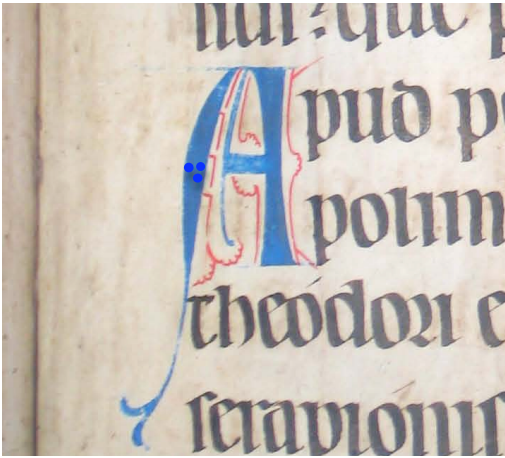 que
Apud
Apolin
theodori e
serapionis